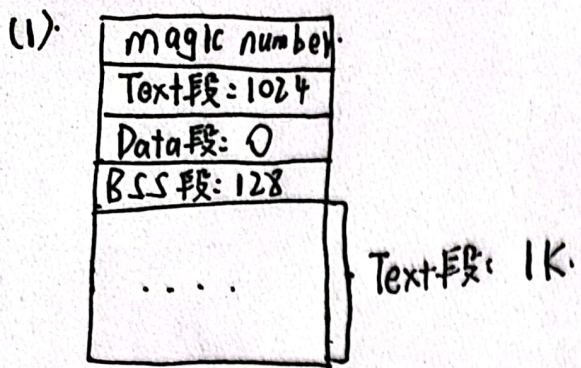 (1).
magic number.
Text段:1024
Data段:0
BSS段:128
....
Text段: 1K.